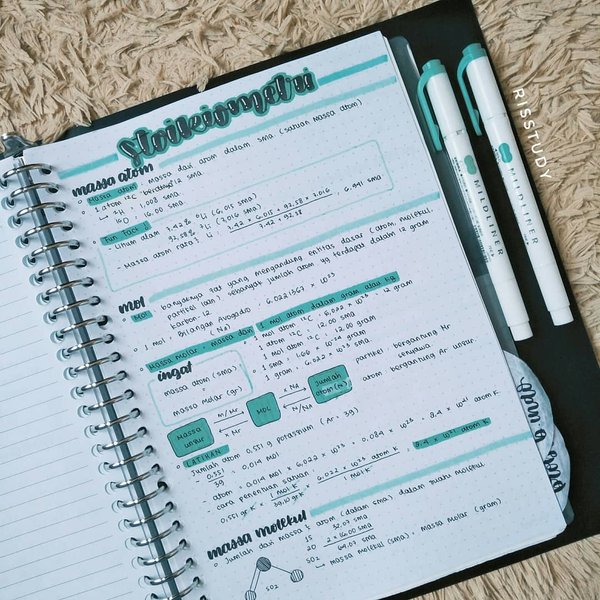 Stoikiometri
massa atom
Massa atom : massa dari atom dalam sma (satuan massa atom)
1 atom ¹²C beratnya 12 sma
↳ ¹H : 1,008 sma
¹⁶O : 16,00 sma
Fun Fact !!
- Lithium alam 7.42% ⁶Li (6,015 sma)
92,58% ⁷Li (7,016 sma)
- Massa atom rata² Li : 7.42 x 6,015 + 92,58 x 7,016 : 6,941 sma
7.42 + 92.58
mol
Mol : banyaknya zat yang mengandung entitas dasar (atom, molekul,
partikel lain) sebanyak jumlah atom yg terdapat dalam 12 gram
karbon-12
1 mol : Bilangan Avogadro : 6,0221367 x 10²³
(NA)
Massa molar : massa dari 1 mol atom dalam gram atau kg
1 mol atom ¹²C : 6,022 x 10²³ : 12 gram
1 atom ¹²C : 12,00 sma
1 mol atom ¹²C : 12,00 gram
1 gram : 6,022 x 10²³ sma
ingat
massa atom (sma)
=
massa molar (gr)
Massa unsur
m/Mr
x Mr
MOL
x NA
N/NA
Jumlah atom (N)
partikel berganting Mr senyawa
atom berganting Ar unsur.
LATIHAN
Jumlah atom 0,551 g potassium (Ar : 39)
- 0,551 : 0,014 mol
39
atom : 0,014 mol x 6,022 x 10²³ : 0,084 x 10²³ : 8.4 x 10²¹ atom K
cara penentuan satuan
0,551 gr K x 1 mol K x 6,022 x 10²³ atom K : 8.4 x 10²¹ atom K
39,10 gr K 1 mol K
massa molekul
Jumlah dari massa² atom (dalam sma) dalam suatu molekul
1S 32.07 sma
2O 2 x 16.00 sma
SO2 64.07 sma
↳ massa molekul (sma) : massa molar (gram)
SO2
MILDLINER
MILDLINER
RISSTUDY